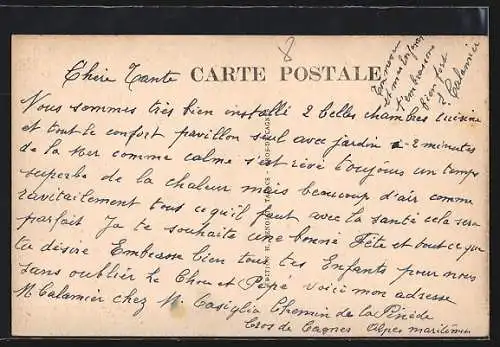 8
Chère Tante
CARTE POSTALE
Nous sommes très bien installé 2 belles chambres cuisine
et tout le confort pavillon seul avec jardin 2 minutes
de la Mer comme calme s'est rêvé toujous un temps
superbe de la chaleur mais beaucoup d'air comme
ravitaillement tous ce qu'il faut avec la santé cela sera
parfait Je te souhaite une bonne Fête et tout ce que
tu désire Embrasse bien tous tes Enfants pour nous
sans oublier le Chou et Pépé voici mon adresse
M Calamier chez M. Casiglia Chemin de la Pinède
Cros de Cagnes Alpes maritimes
t'embrassons
Bien fort
Calamier